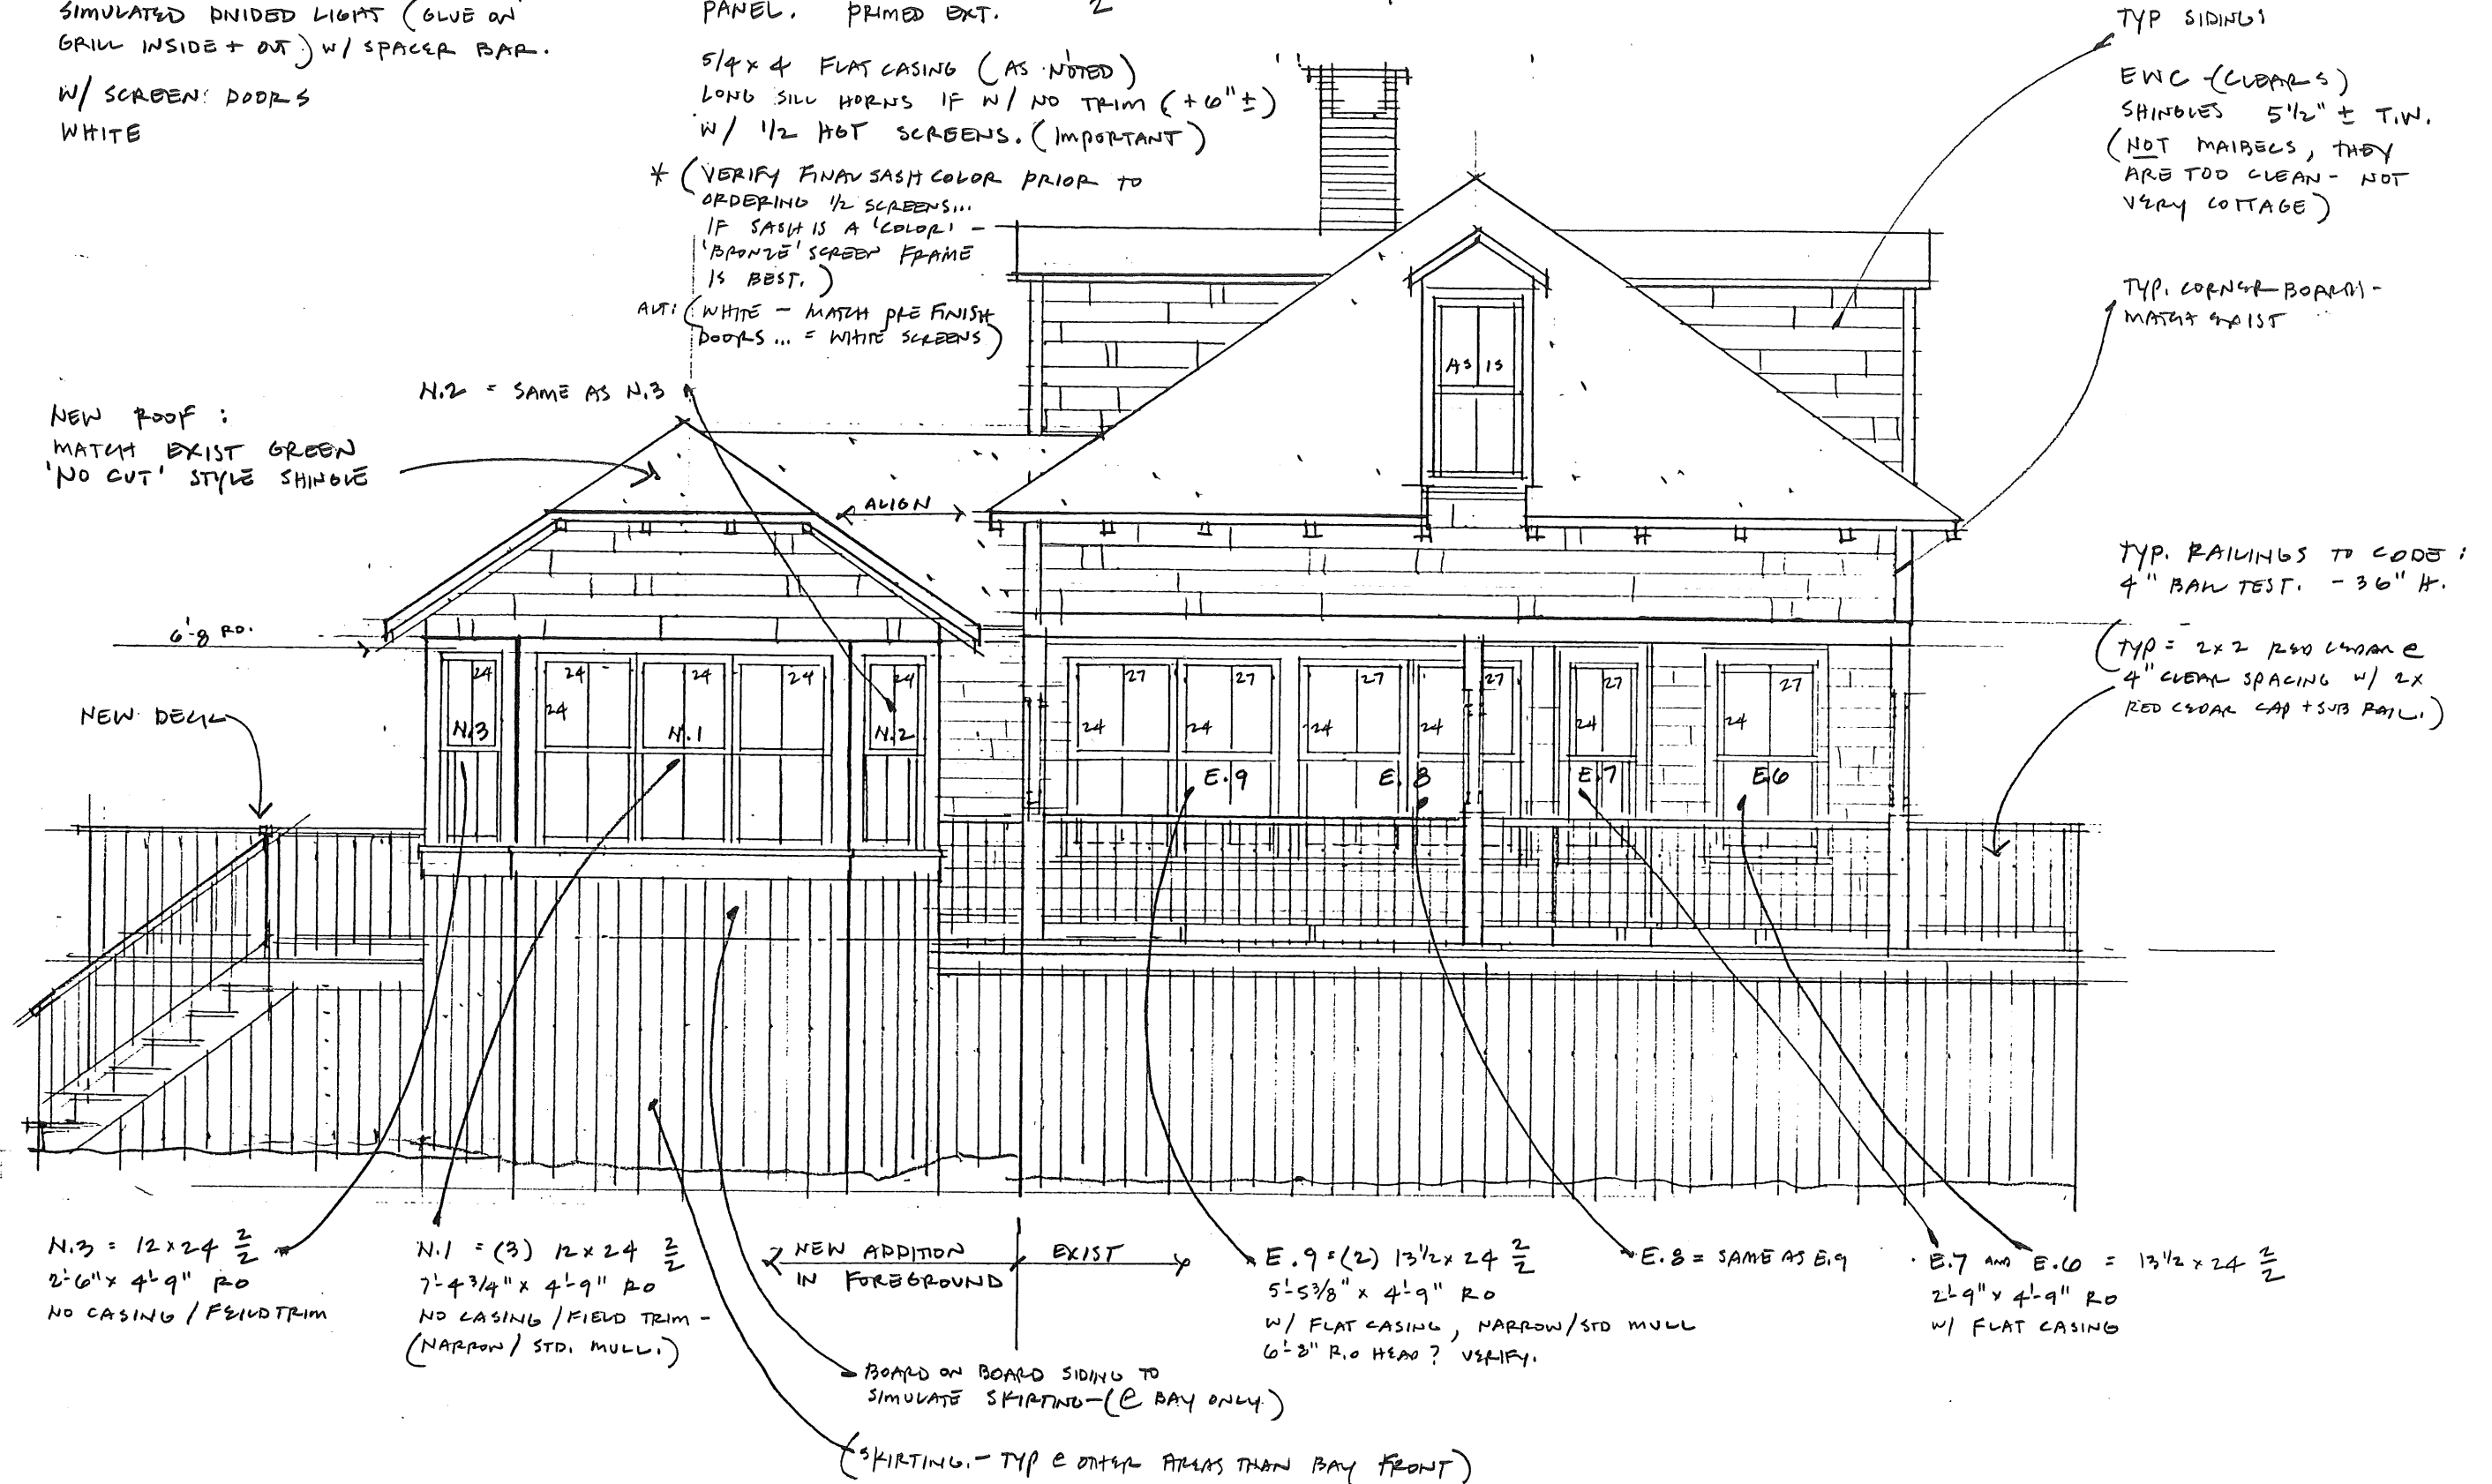 SIMULATED DIVIDED LIGHT (GLUE ON
GRILL INSIDE + OUT) W/ SPACER BAR.
W/ SCREEN DOORS
WHITE
PANEL. PRIMED EXT. 2
5/4 x 4 FLAT CASING (AS NOTED)
LONG SILL HORNS IF W/ NO TRIM (+6"±)
W/ 1/2 HGT SCREENS. (IMPORTANT)
* (VERIFY FINAL SASH COLOR PRIOR TO
ORDERING 1/2 SCREENS...
IF SASH IS A 'COLOR' -
'BRONZE' SCREEN FRAME
IS BEST.)
ALT: (WHITE - MATCH PRE FINISH
DOORS... = WHITE SCREENS)
TYP SIDING:
EWC - (CLEARS)
SHINGLES 5 1/2" ± T.W.
(NOT MAIBECS, THEY
ARE TOO CLEAN - NOT
VERY COTTAGE)
TYP. CORNER BOARDS -
MATCH EXIST
N.2 = SAME AS N.3
NEW ROOF :
MATCH EXIST GREEN
'NO CUT' STYLE SHINGLE
AS IS
ALIGN
TYP. RAILINGS TO CODE :
4" BALL TEST. - 36" H.
(TYP = 2x2 RED CEDAR @
4" CLEAR SPACING W/ 2x
RED CEDAR CAP + SUB RAIL.)
6'-8 RO.
NEW DECK
24 24 24 24 24 27 27 27 27 27 27 27
24 24 24 24 24 24 24
N.3 N.1 N.2
E.9 E.8 E.7 E.6
N.3 = 12 x 24 2/2
2'-6" x 4'-9" RO
NO CASING / FEILD TRIM
N.1 = (3) 12 x 24 2/2
7'-4 3/4" x 4'-9" RO
NO CASING / FIELD TRIM -
(NARROW / STD. MULL.)
NEW ADDITION
IN FOREGROUND
EXIST
E.9 = (2) 13 1/2 x 24 2/2
5'-5 3/8" x 4'-9" RO
W/ FLAT CASING, NARROW/STD MULL
6'-8" R.O HEAD ? VERIFY.
E.8 = SAME AS E.9
E.7 AND E.6 = 13 1/2 x 24 2/2
2'-9" x 4'-9" RO
W/ FLAT CASING
BOARD ON BOARD SIDING TO
SIMULATE SKIRTING - (@ BAY ONLY)
(SKIRTING. - TYP @ OTHER AREAS THAN BAY FRONT)